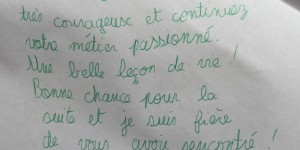 très courageuse et continuez
votre métier passionné.
Une belle leçon de vie !
Bonne chance pour la
suite et je suis fière
de vous avoir rencontré !